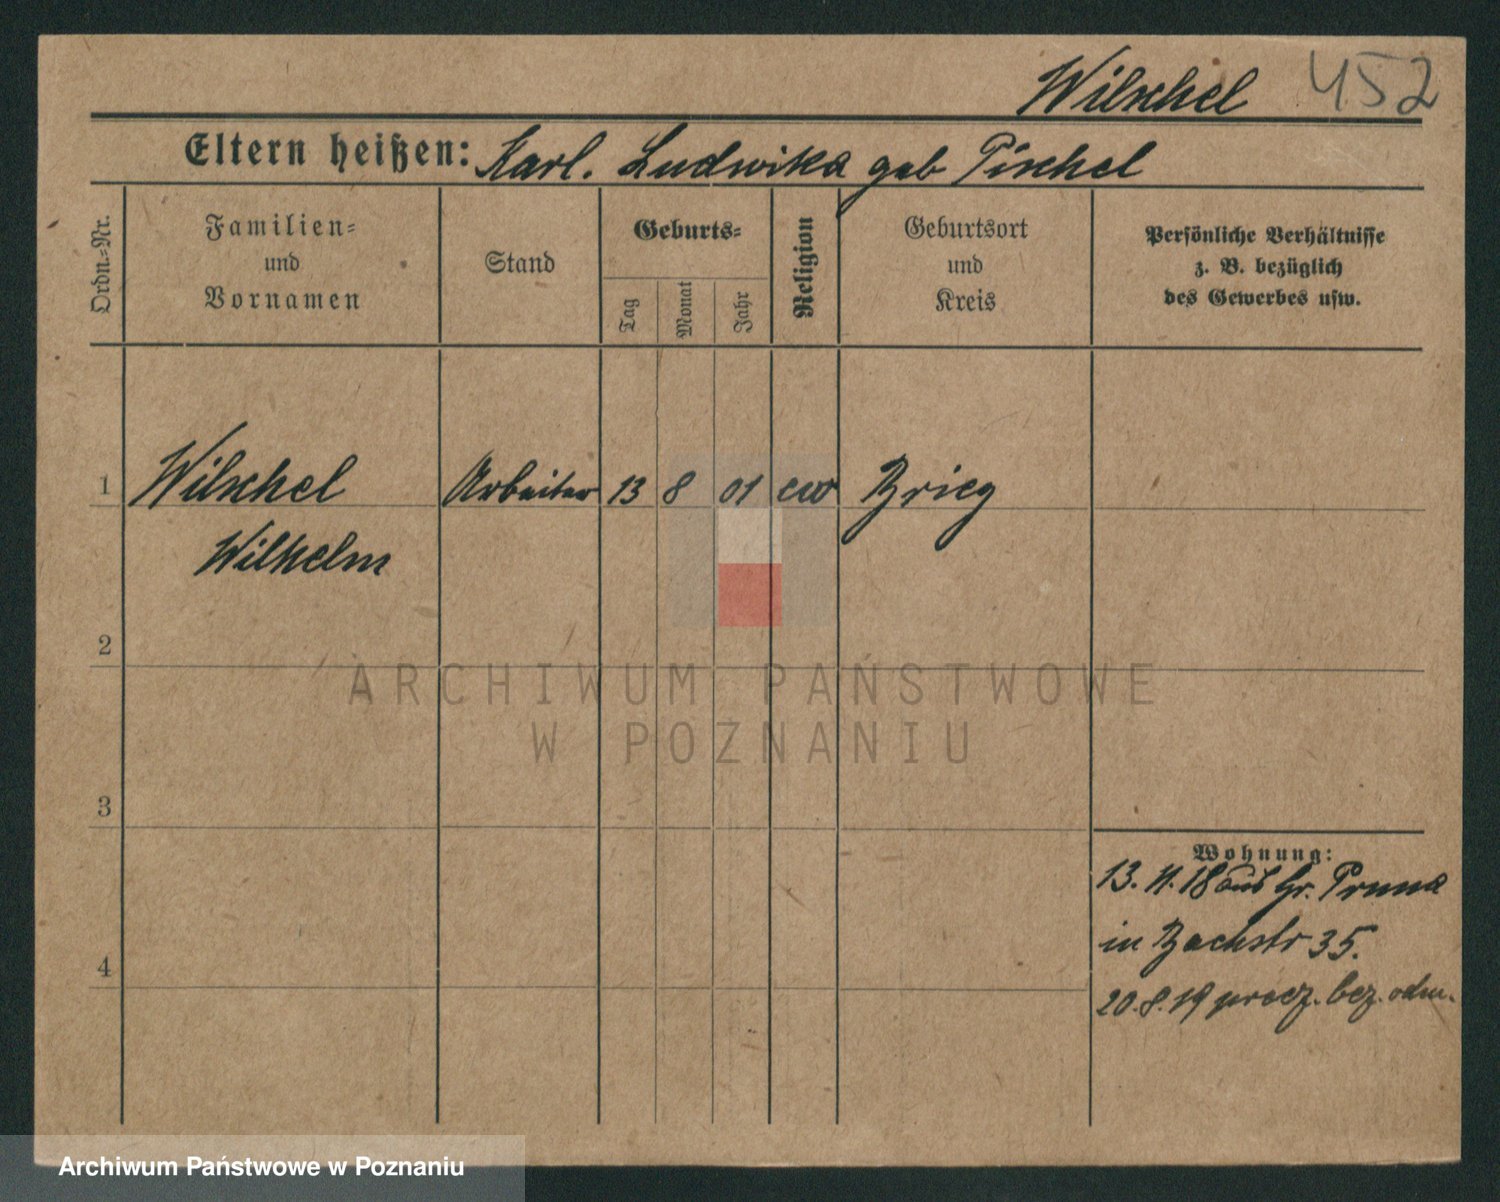 Wilschel 452
Eltern heißen: Karl. Ludwika geb Pischel
Ordn.=Nr.
Familien=
und
Vornamen
Stand
Geburts=
Tag
Monat
Jahr
Religion
Geburtsort
und
Kreis
Persönliche Verhältnisse
z. B. bezüglich
des Gewerbes usw.
1 Wilschel Arbeiter 13 8 01 ew Brieg
Wilhelm
2
3
4
Wohnung:
13. 11. 18 aus Gr.
in Bachstr 35.
20. 8. 19 bez. odm.
ARCHIWUM PAŃSTWOWE
W POZNANIU
Archiwum Państwowe w Poznaniu